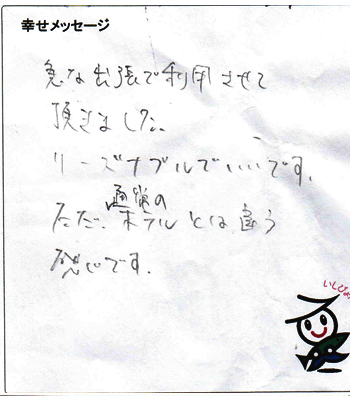 幸せメッセージ
急な出張で利用させて
頂きました。
リーズナブルでいいです。
ただ、通常の
ホテルとは違う
感じです。